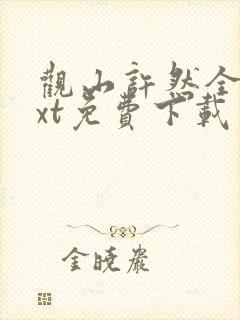 觀山許然全
xt免費下載
金曉巖